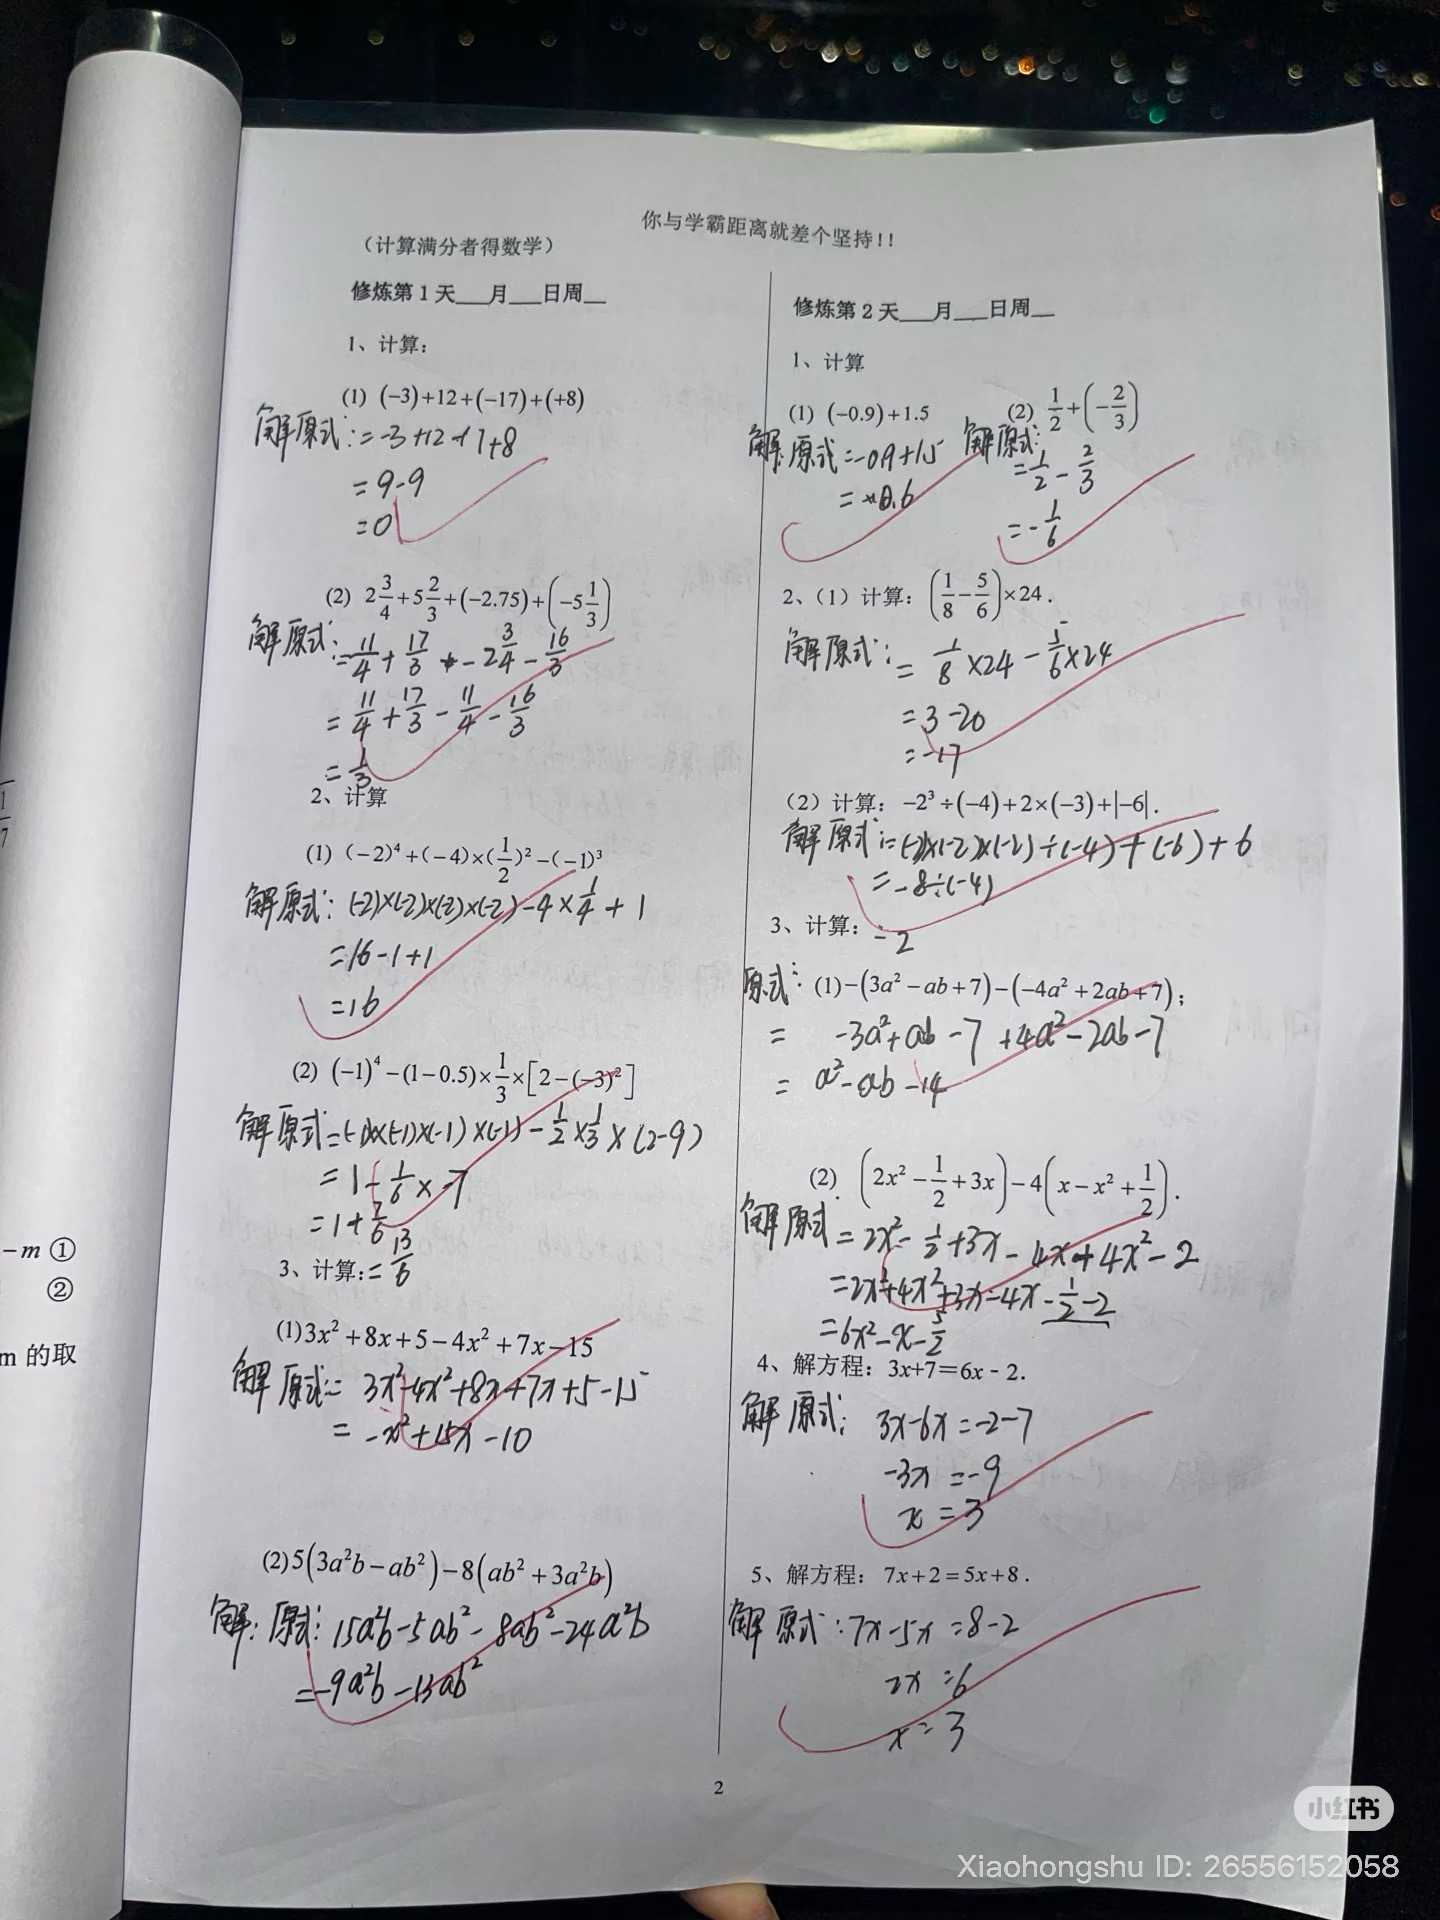 你与学霸距离就差个坚持!!
（计算满分者得数学）
修炼第1天___月___日周__
1、计算：
(1) (−3)+12+(−17)+(+8)
解原式:=-3+12-17+8
=9-9
=0
(2) 2 3/4+5 2/3+(−2.75)+(−5 1/3)
解原式:=11/4+17/3-2 3/4-16/3
=11/4+17/3-11/4-16/3
=1/3
2、计算
(1) (−2)⁴+(−4)×(1/2)²−(−1)³
解原式:(-2)×(-2)×(-2)×(-2)-4×1/4+1
=16-1+1
=16
(2) (−1)⁴−(1−0.5)×1/3×[2−(−3)²]
解原式=(-1)×(-1)×(-1)×(-1)-1/2×1/3×(2-9)
=1-1/6×-7
=1+7/6
3、计算:=13/6
(1)3x²+8x+5−4x²+7x−15
解原式:=3x²-4x²+8x+7x+5-15
=-x²+15x-10
(2)5(3a²b−ab²)−8(ab²+3a²b)
解:原式:15a²b-5ab²-8ab²-24a²b
=-9a²b-13ab²
修炼第2天___月___日周__
1、计算
(1) (−0.9)+1.5
(2) 1/2+(−2/3)
解:原式=-0.9+1.5
=0.6
解原式:
=1/2-2/3
=-1/6
2、（1）计算：(1/8−5/6)×24．
解原式:=1/8×24-5/6×24
=3-20
=-17
（2）计算：−2³÷(−4)+2×(−3)+|−6|．
解原式:=(-2)×(-2)×(-2)÷(-4)+(-6)+6
=-8÷(-4)
3、计算：=2
原式: (1)−(3a²−ab+7)−(−4a²+2ab+7)；
= -3a²+ab-7+4a²-2ab-7
= a²-ab-14
(2) (2x²−1/2+3x)−4(x−x²+1/2)．
解原式=2x²-1/2+3x-4x+4x²-2
=2x²+4x²+3x-4x-1/2-2
=6x²-x-5/2
4、解方程：3x+7=6x-2．
解原式:3x-6x=-2-7
-3x=-9
x=3
5、解方程：7x+2=5x+8．
解原式:7x-5x=8-2
2x=6
x=3
2
1/7
−m ①
②
m 的取
小红书
Xiaohongshu ID: 26556152058